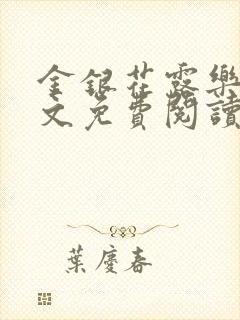 金銀花露樂
文免費閱讀
葉慶春